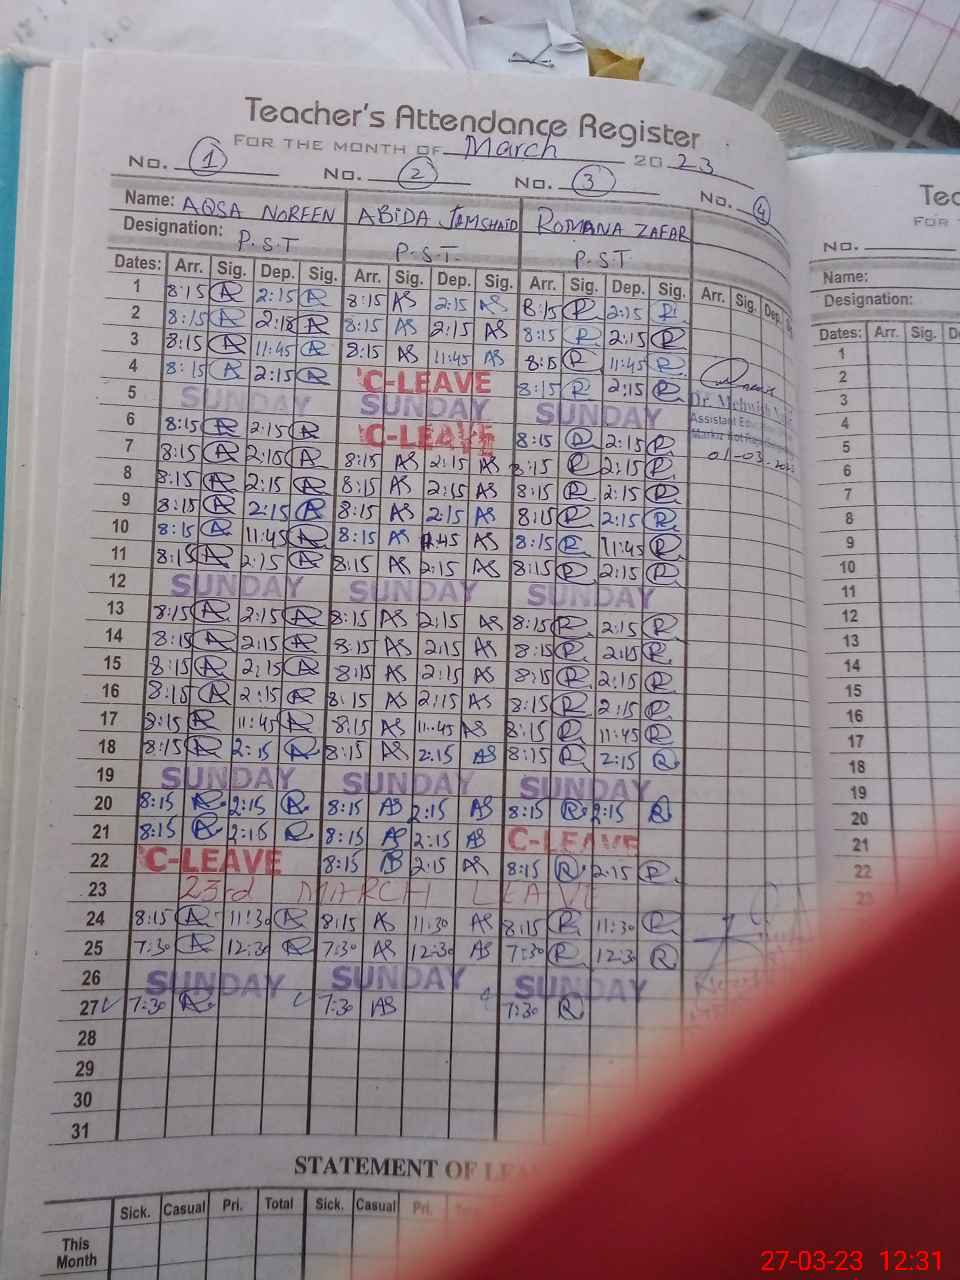 Teacher's Attendance Register
FOR THE MONTH OF March 2023
No. 1 No. 2 No. 3 No. 4
Name: AQSA NOREEN ABIDA JAMSHAID ROMANA ZAFAR
Designation: P.S.T P.S.T. P.S.T
Dates: Arr. Sig. Dep. Sig. Arr. Sig. Dep. Sig. Arr. Sig. Dep. Sig. Arr. Sig. Dep.
1 8:15 A 2:15 A 8:15 AS 2:15 AS 8:15 R 2:15 R
2 8:15 A 2:18 A 8:15 AS 2:15 AS 8:15 R 2:15 R
3 8:15 A 11:45 A 8:15 AS 11:45 AS 8:15 R 11:45 R
4 8:15 A 2:15 A C-LEAVE 8:15 R 2:15 R
5 SUNDAY SUNDAY SUNDAY
6 8:15 A 2:15 A C-LEAVE 8:15 R 2:15 R
7 8:15 A 2:15 A 8:15 AS 2:15 AS 8:15 R 2:15 R
8 8:15 A 2:15 A 8:15 AS 2:15 AS 8:15 R 2:15 R
9 8:15 A 2:15 A 8:15 AS 2:15 AS 8:15 R 2:15 R
10 8:15 A 11:45 A 8:15 AS 11:45 AS 8:15 R 11:45 R
11 8:15 A 2:15 A 8:15 AS 2:15 AS 8:15 R 2:15 R
12 SUNDAY SUNDAY SUNDAY
13 8:15 A 2:15 A 8:15 AS 2:15 AS 8:15 R 2:15 R
14 8:15 A 2:15 A 8:15 AS 2:15 AS 8:15 R 2:15 R
15 8:15 A 2:15 A 8:15 AS 2:15 AS 8:15 R 2:15 R
16 8:15 A 2:15 A 8:15 AS 2:15 AS 8:15 R 2:15 R
17 8:15 A 11:45 A 8:15 AS 11:45 AS 8:15 R 11:45 R
18 8:15 A 2:15 A 8:15 AS 2:15 AS 8:15 R 2:15 R
19 SUNDAY SUNDAY SUNDAY
20 8:15 A 2:15 A 8:15 AS 2:15 AS 8:15 R 2:15 R
21 8:15 A 2:15 A 8:15 AS 2:15 AS C-LEAVE
22 C-LEAVE 8:15 AS 2:15 AS 8:15 R 2:15 R
23 23rd MARCH LEAVE
24 8:15 A 11:30 A 8:15 AS 11:30 AS 8:15 R 11:30 R
25 7:30 A 12:30 A 7:30 AS 12:30 AS 7:30 R 12:30 R
26 SUNDAY SUNDAY SUNDAY
27 7:30 A 7:30 AS 7:30 R
28
29
30
31
Dr. Mehwish
Assistant
Markaz
01-03-
STATEMENT OF
Sick. Casual Pri. Total Sick. Casual Pri.
This
Month
FOR
No.
Name:
Designation:
Dates: Arr. Sig.
1
2
3
4
5
6
7
8
9
10
11
12
13
14
15
16
17
18
19
20
21
22
23
27-03-23 12:31